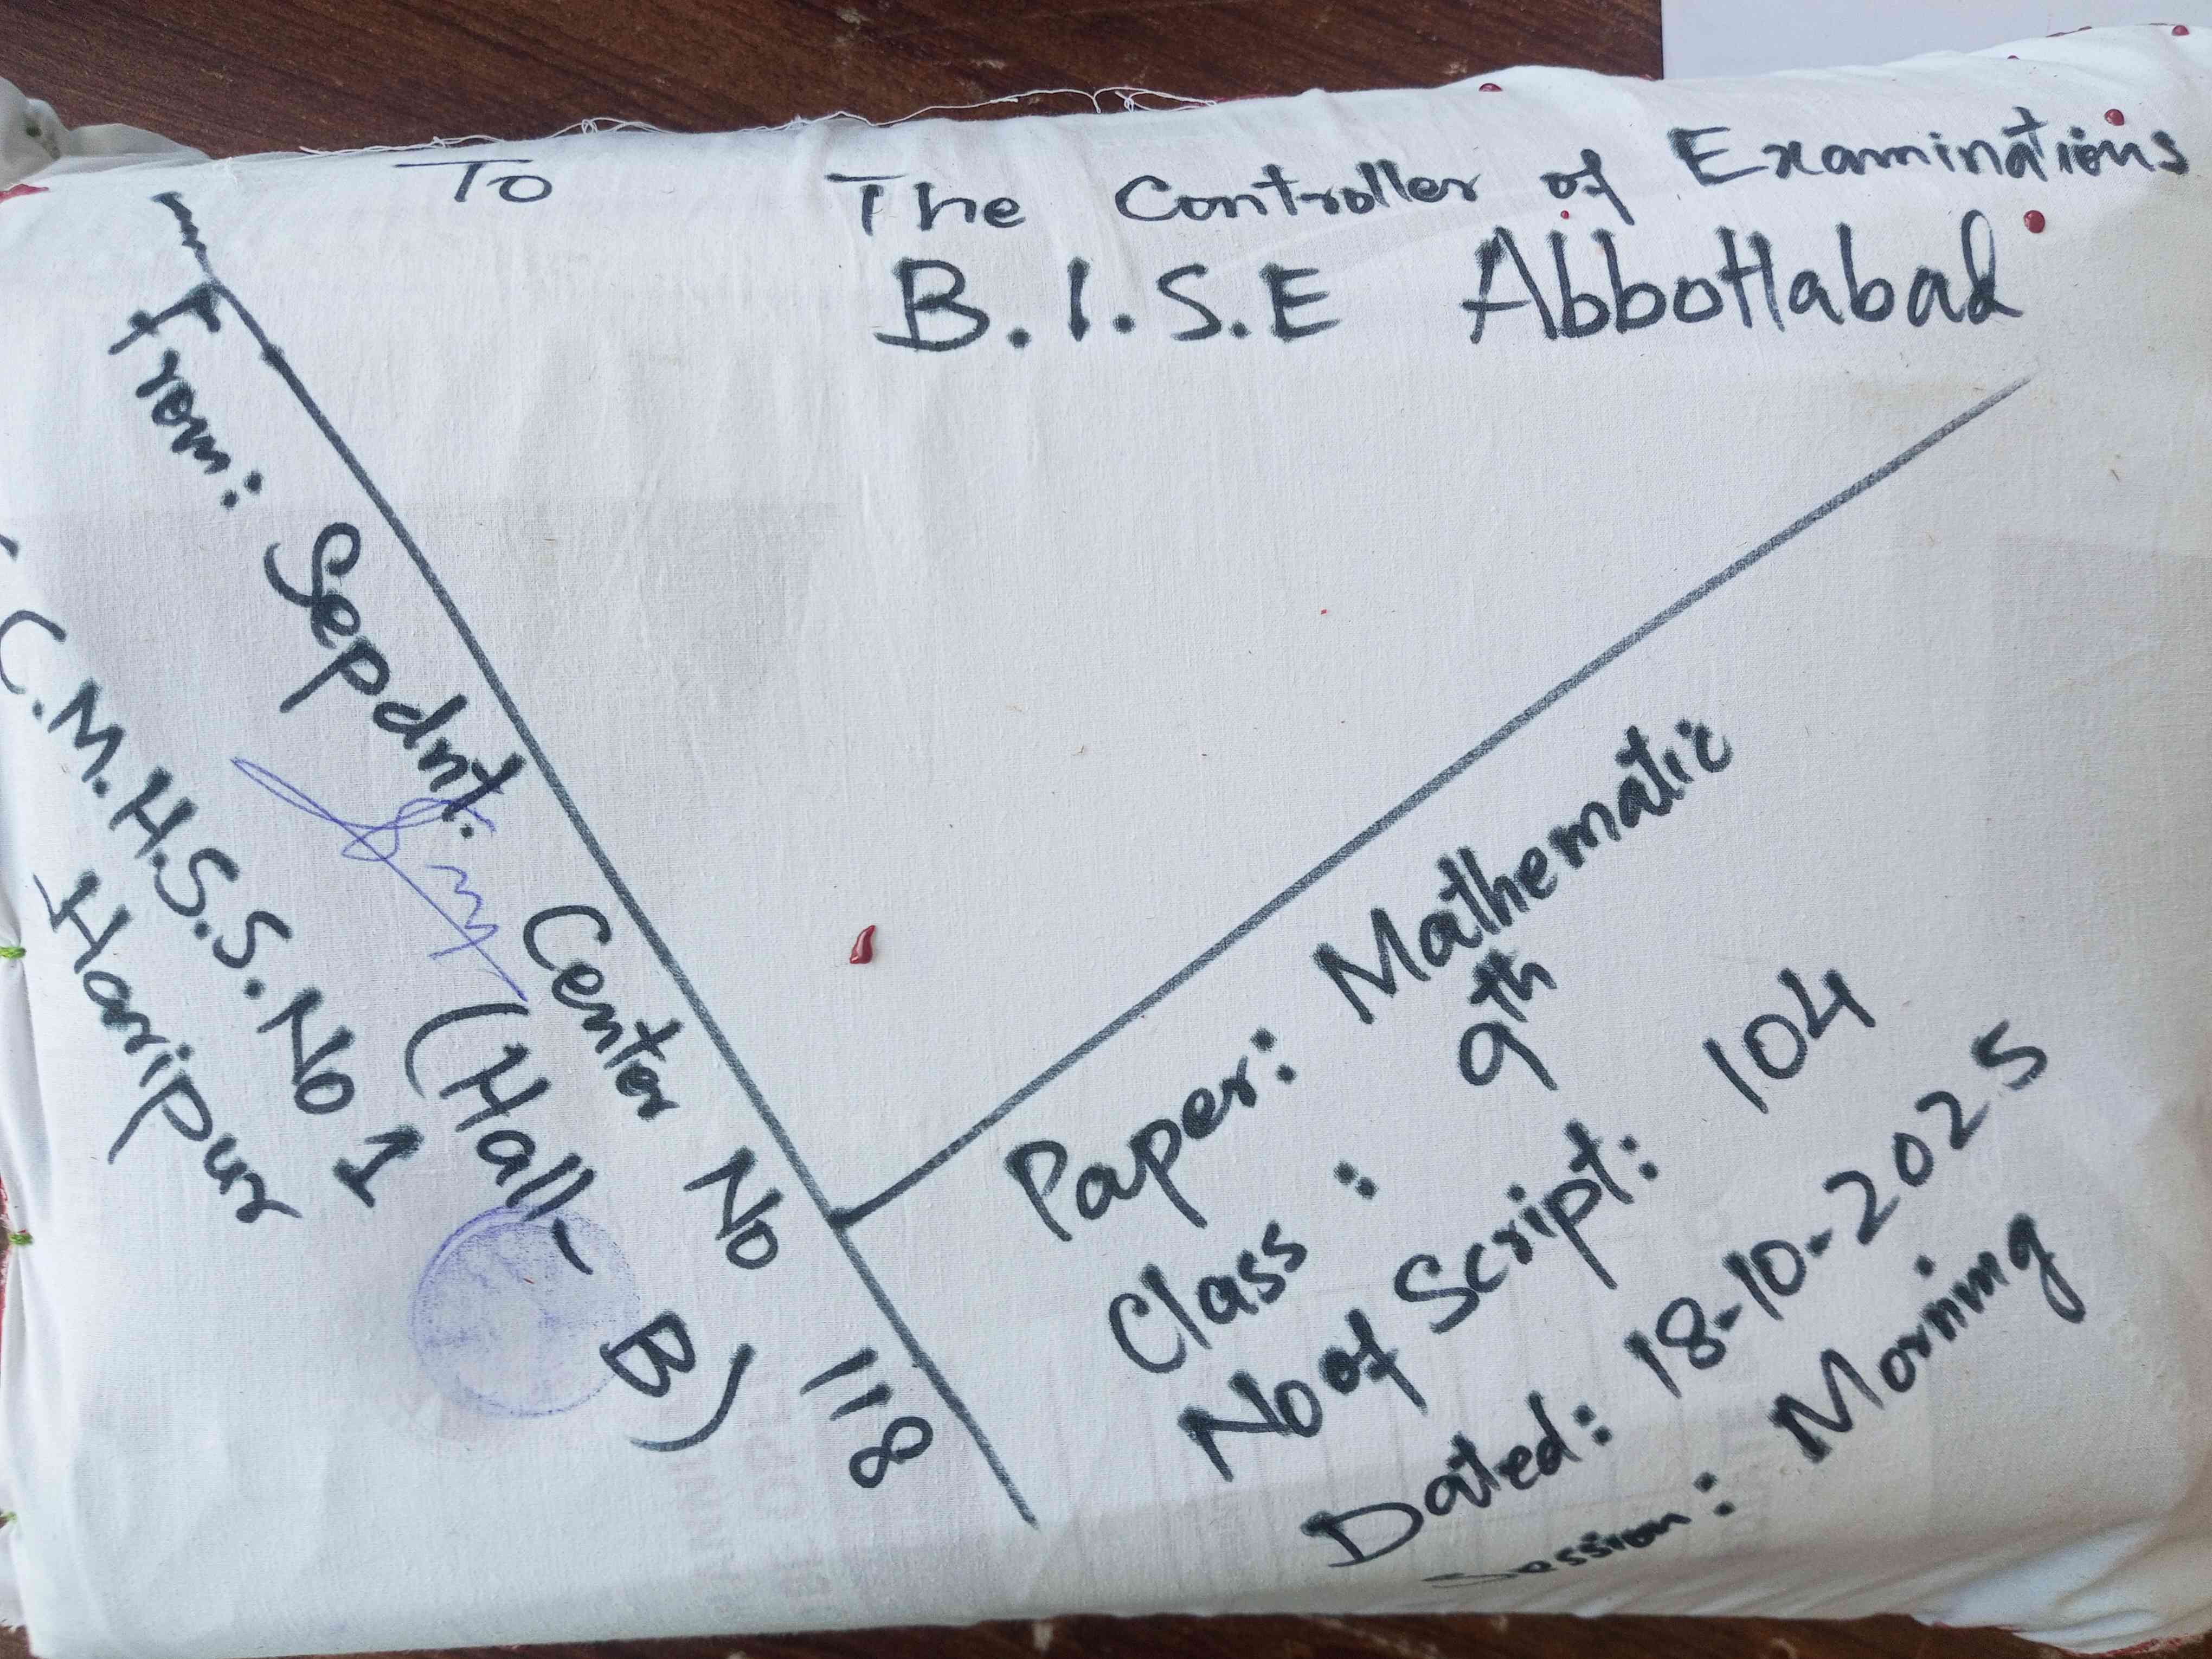 To
The Controller of Examinations
B.I.S.E Abbottabad
From: Sepdnt. Center No 118
(Hall-B)
C.M.H.S.S. No 1
Haripur
Paper: Mathematic
Class : 9th
No of Script: 104
Dated: 18-10-2025
Session: Morning